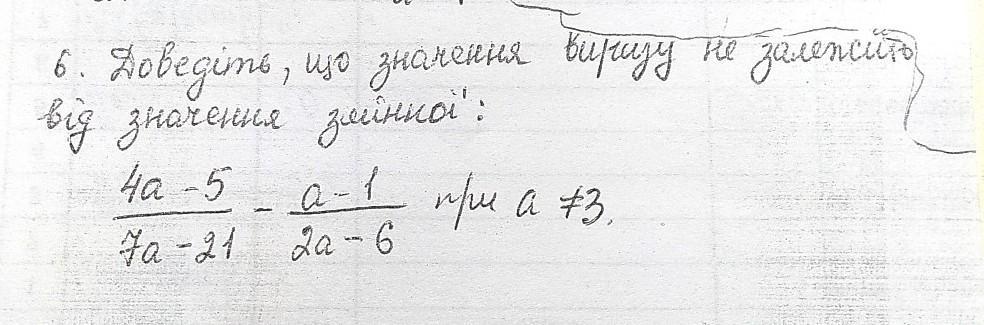 6. Доведіть, що значення виразу не залежить
від значення змінної:
4a - 5 / 7a - 21 - a - 1 / 2a - 6 при a ≠ 3.